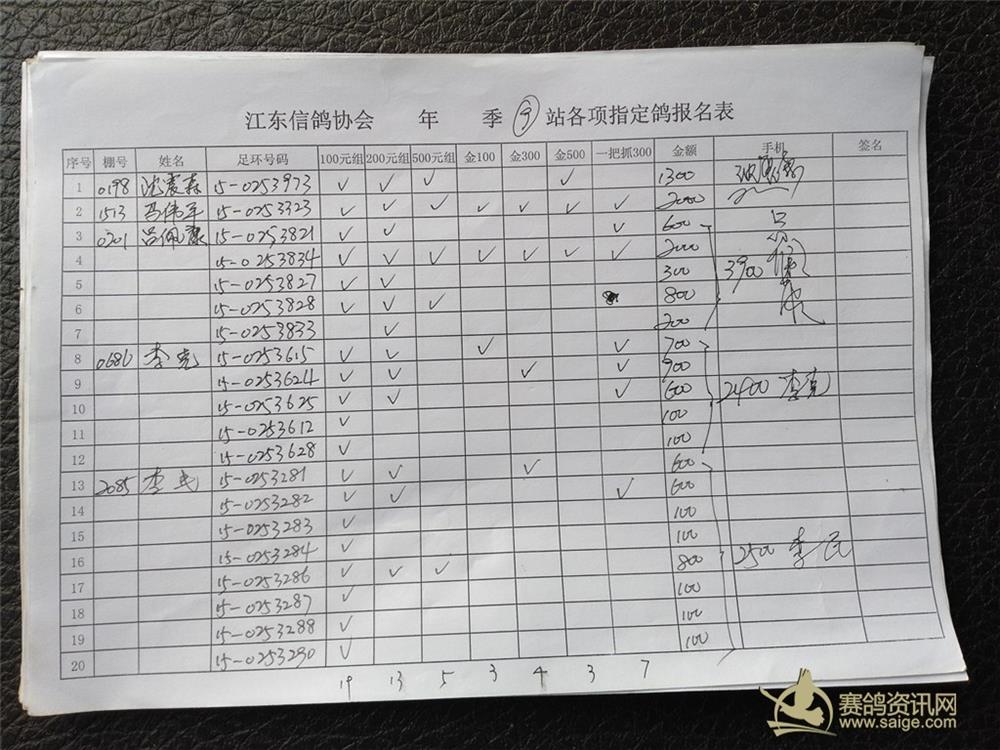 江东信鸽协会 年 季 站各项指定鸽报名表
序号 棚号 姓名 足环号码 100元组 200元组 500元组 金100 金300 金500 一把抓300 金额 手机 签名
1 0198 沈震森 15-0253973 √ √ √ √ 1300
2 1513 冯伟军 15-0253323 √ √ √ √ √ √ √ 2000
3 0201 吕佩康 15-0253821 √ √ √ 600
4 15-0253834 √ √ √ √ √ √ √ 2000
5 15-0253827 √ √ 300 3900
6 15-0253828 √ √ √ 800
7 15-0253833 √ 200
8 0686 李克 15-0253615 √ √ √ √ 700
9 15-0253624 √ √ √ √ 900
10 15-0253625 √ √ √ 600 2400 李克
11 15-0253612 √ 100
12 15-0253628 √ 100
13 2085 李民 15-0253281 √ √ √ 600
14 15-0253282 √ √ √ 600
15 15-0253283 √ 100
16 15-0253284 √ 100
17 15-0253286 √ √ √ 800 2500 李民
18 15-0253287 √ 100
19 15-0253288 √ 100
20 15-0253290 √ 100
19 13 5 3 4 3 7
赛鸽资讯网
www.saige.com